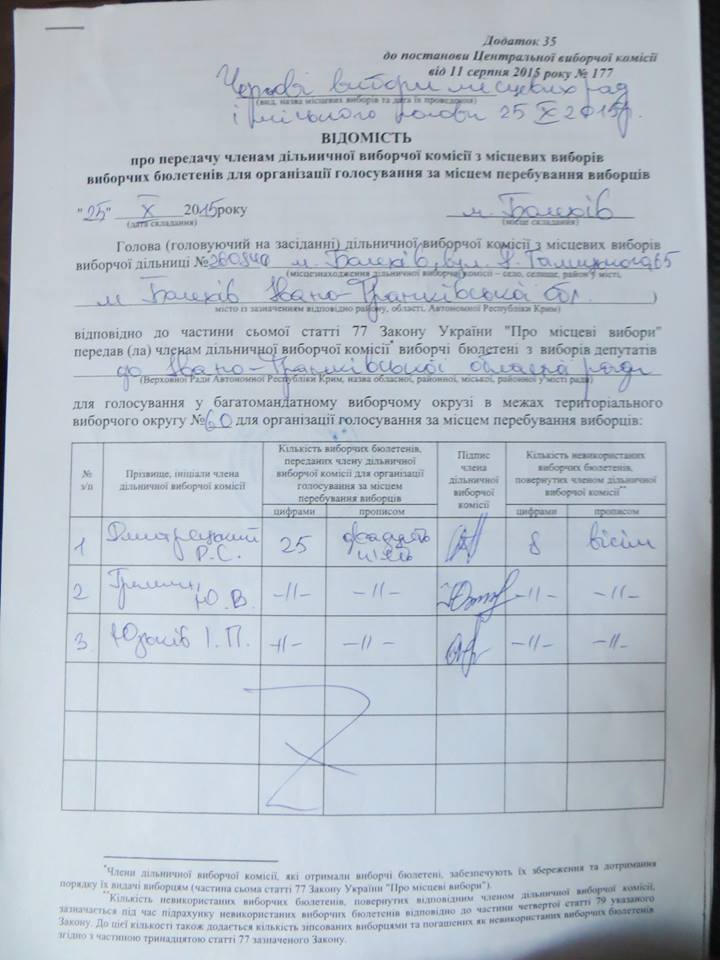 Додаток 35
до постанови Центральної виборчої комісії
від 11 серпня 2015 року № 177
Чергові вибори місцевих рад
(вид, назва місцевих виборів та дата їх проведення)
і міського голови 25 X 2015р.
ВІДОМІСТЬ
про передачу членам дільничної виборчої комісії з місцевих виборів
виборчих бюлетенів для організації голосування за місцем перебування виборців
"25" X 2015 року м. Болехів
(дата складання) (місце складання)
Голова (головуючий на засіданні) дільничної виборчої комісії з місцевих виборів
виборчої дільниці № м. Болехів, вул. Д. Галицького, 65
(місцезнаходження дільничної виборчої комісії – село, селище, район у місті,
м Болехів Івано-Франківська обл. )
місто із зазначенням відповідно району, області, Автономної Республіки Крим)
відповідно до частини сьомої статті 77 Закону України "Про місцеві вибори"
передав (ла) членам дільничної виборчої комісії* виборчі бюлетені з виборів депутатів
до Івано-Франківської обласної ради
(Верховної Ради Автономної Республіки Крим, назва обласної, районної, міської, районної у місті ради)
для голосування у багатомандатному виборчому окрузі в межах територіального
виборчого округу № 60 для організації голосування за місцем перебування виборців:
№ з/п
Прізвище, ініціали члена дільничної виборчої комісії
Кількість виборчих бюлетенів, переданих члену дільничної виборчої комісії для організації голосування за місцем перебування виборців
Підпис члена дільничної виборчої комісії
Кількість невикористаних виборчих бюлетенів, повернутих членом дільничної виборчої комісії**
цифрами прописом цифрами прописом
1 Р.С. 25 двадцять п'ять 8 вісім
2 Ю.В. -//- -//- -//- -//-
3 І.П. -//- -//- -//- -//-
*Члени дільничної виборчої комісії, які отримали виборчі бюлетені, забезпечують їх збереження та дотримання
порядку їх видачі виборцям (частина сьома статті 77 Закону України "Про місцеві вибори").
**Кількість невикористаних виборчих бюлетенів, повернутих відповідним членом дільничної виборчої комісії,
зазначається під час підрахунку невикористаних виборчих бюлетенів відповідно до частини четвертої статті 79 указаного
Закону. До цієї кількості також додається кількість зіпсованих виборцями та погашених як невикористаних виборчих бюлетенів
згідно з частиною тринадцятою статті 77 зазначеного Закону.